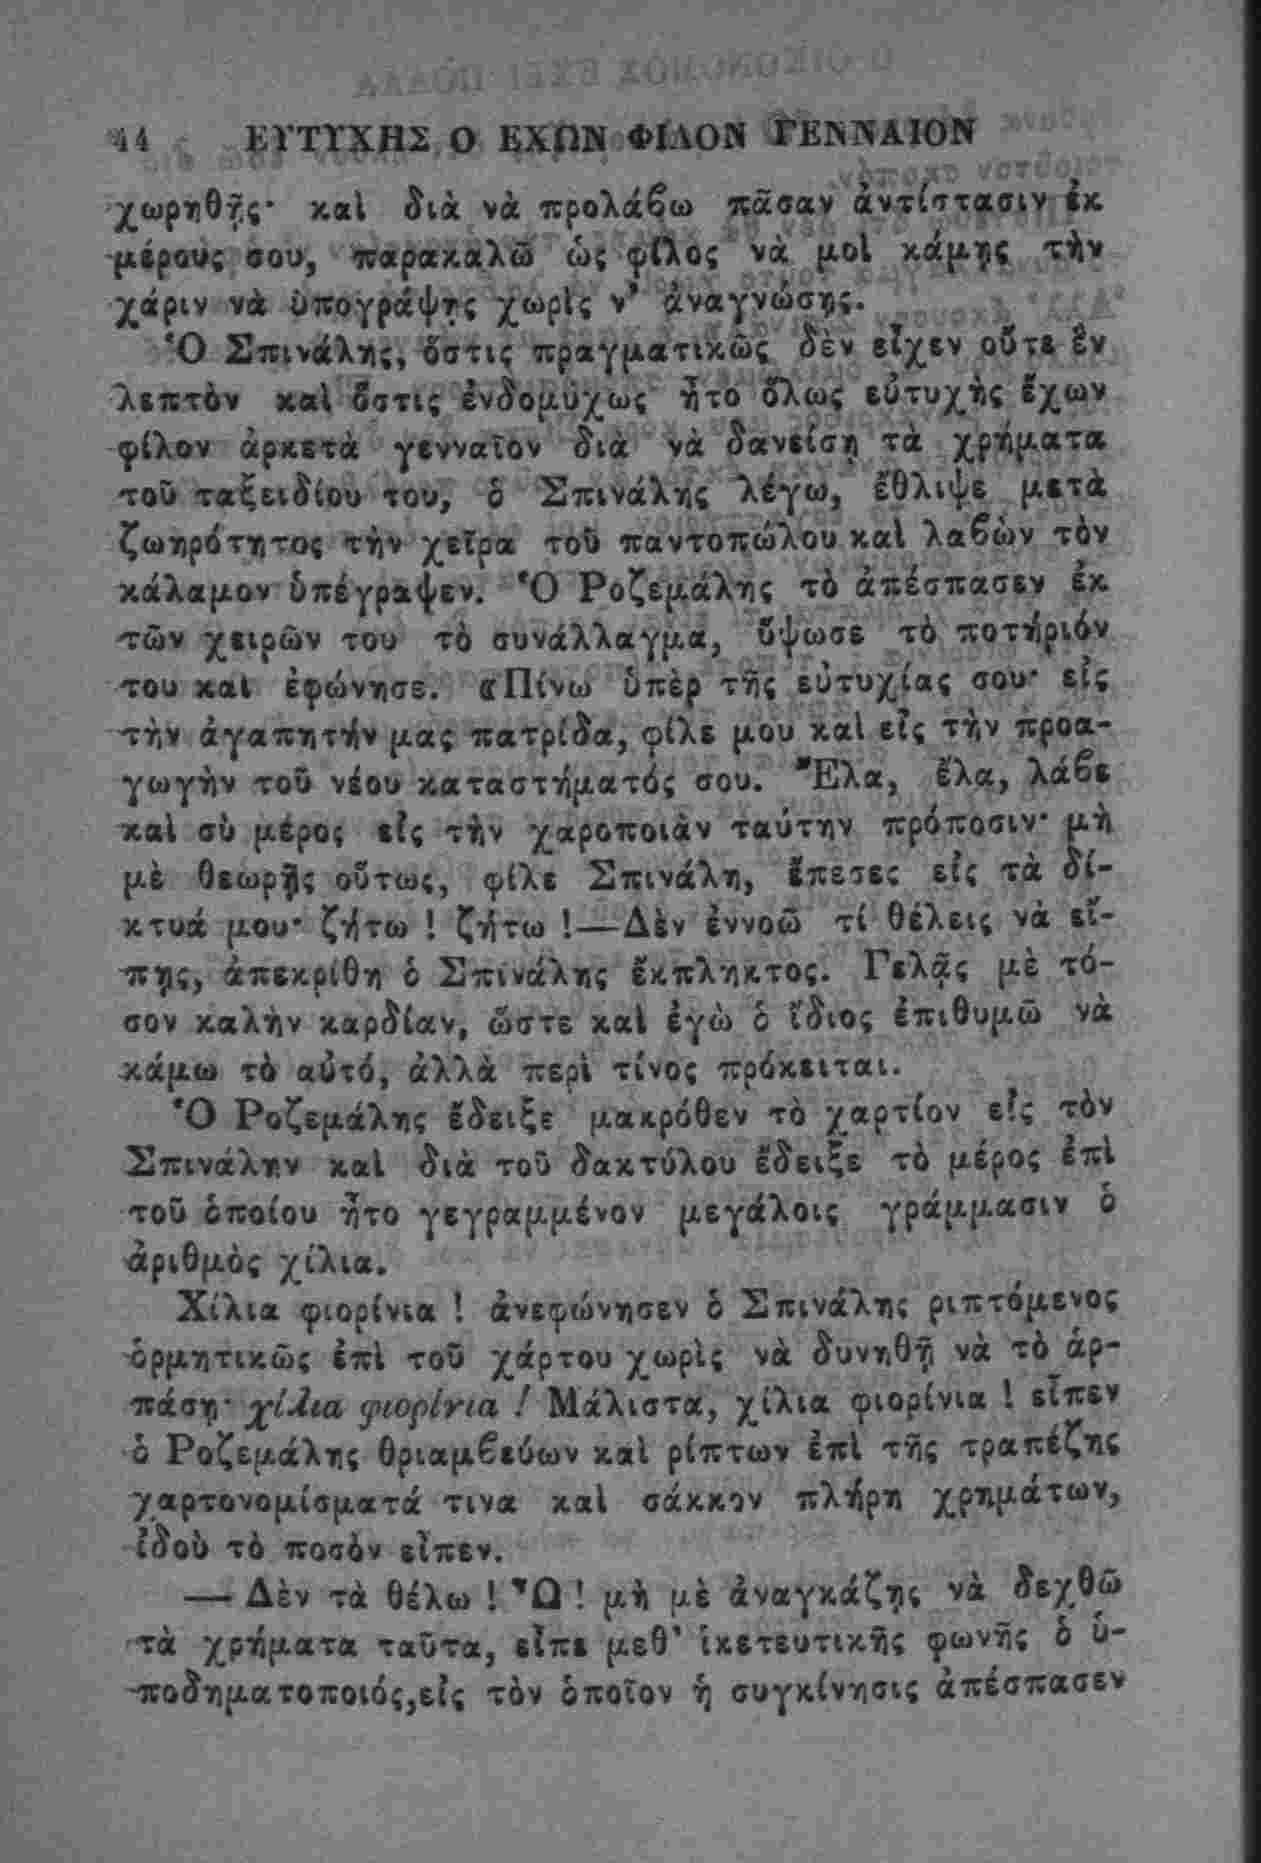 44 ΕΥΤΥΧΗΣ Ο ΕΧΩΝ ΦΙΛΟΝ ΓΕΝΝΑΙΟΝ
χωρηθῇς· καὶ διὰ νὰ προλάβω πᾶσαν ἀντίστασιν ἐκ
μέρους σου, παρακαλῶ ὡς φίλος νὰ μοὶ κάμῃς τὴν
χάριν νὰ ὑπογράψῃς χωρὶς ν' ἀναγνώσῃς.
Ὁ Σπινάλης, ὅστις πραγματικῶς δὲν εἶχεν οὔτε ἓν
λεπτὸν καὶ ὅστις ἐνδομύχως ἦτο ὅλως εὐτυχὴς ἔχων
φίλον ἀρκετὰ γενναῖον διὰ νὰ δανείσῃ τὰ χρήματα
τοῦ ταξειδίου του, ὁ Σπινάλης λέγω, ἔθλιψε μετὰ
ζωηρότητος τὴν χεῖρα τοῦ παντοπώλου καὶ λαβὼν τὸν
κάλαμον ὑπέγραψεν. Ὁ Ροζεμάλης τὸ ἀπέσπασεν ἐκ
τῶν χειρῶν του τὸ συνάλλαγμα, ὕψωσε τὸ ποτήριόν
του καὶ ἐφώνησε. «Πίνω ὑπὲρ τῆς εὐτυχίας σου· εἰς
τὴν ἀγαπητήν μας πατρίδα, φίλε μου καὶ εἰς τὴν προα-
γωγὴν τοῦ νέου καταστήματός σου. Ἔλα, ἔλα, λάβε
καὶ σὺ μέρος εἰς τὴν χαροποιὰν ταύτην πρόποσιν· μὴ
μὲ θεωρῇς οὕτως, φίλε Σπινάλη, ἔπεσες εἰς τὰ δί-
κτυά μου· ζήτω ! ζήτω !—Δὲν ἐννοῶ τί θέλεις νὰ εἴ-
πῃς, ἀπεκρίθη ὁ Σπινάλης ἔκπληκτος. Γελᾷς μὲ τό-
σον καλὴν καρδίαν, ὥστε καὶ ἐγὼ ὁ ἴδιος ἐπιθυμῶ νὰ
κάμω τὸ αὐτό, ἀλλὰ περὶ τίνος πρόκειται.
Ὁ Ροζεμάλης ἔδειξε μακρόθεν τὸ χαρτίον εἰς τὸν
Σπινάλην καὶ διὰ τοῦ δακτύλου ἔδειξε τὸ μέρος ἐπὶ
τοῦ ὁποίου ἦτο γεγραμμένον μεγάλοις γράμμασιν ὁ
ἀριθμὸς χίλια.
Χίλια φιορίνια ! ἀνεφώνησεν ὁ Σπινάλης ριπτόμενος
ὁρμητικῶς ἐπὶ τοῦ χάρτου χωρὶς νὰ δυνηθῇ νὰ τὸ ἁρ-
πάσῃ· χίλια φιορίνια ! Μάλιστα, χίλια φιορίνια ! εἶπεν
ὁ Ροζεμάλης θριαμβεύων καὶ ρίπτων ἐπὶ τῆς τραπέζης
χαρτονομίσματά τινα καὶ σάκκον πλήρη χρημάτων,
ἰδοὺ τὸ ποσὸν εἶπεν.
— Δὲν τὰ θέλω ! Ὦ ! μὴ μὲ ἀναγκάζῃς νὰ δεχθῶ
τὰ χρήματα ταῦτα, εἶπε μεθ' ἱκετευτικῆς φωνῆς ὁ ὑ-
ποδηματοποιός,εἰς τὸν ὁποῖον ἡ συγκίνησις ἀπέσπασεν